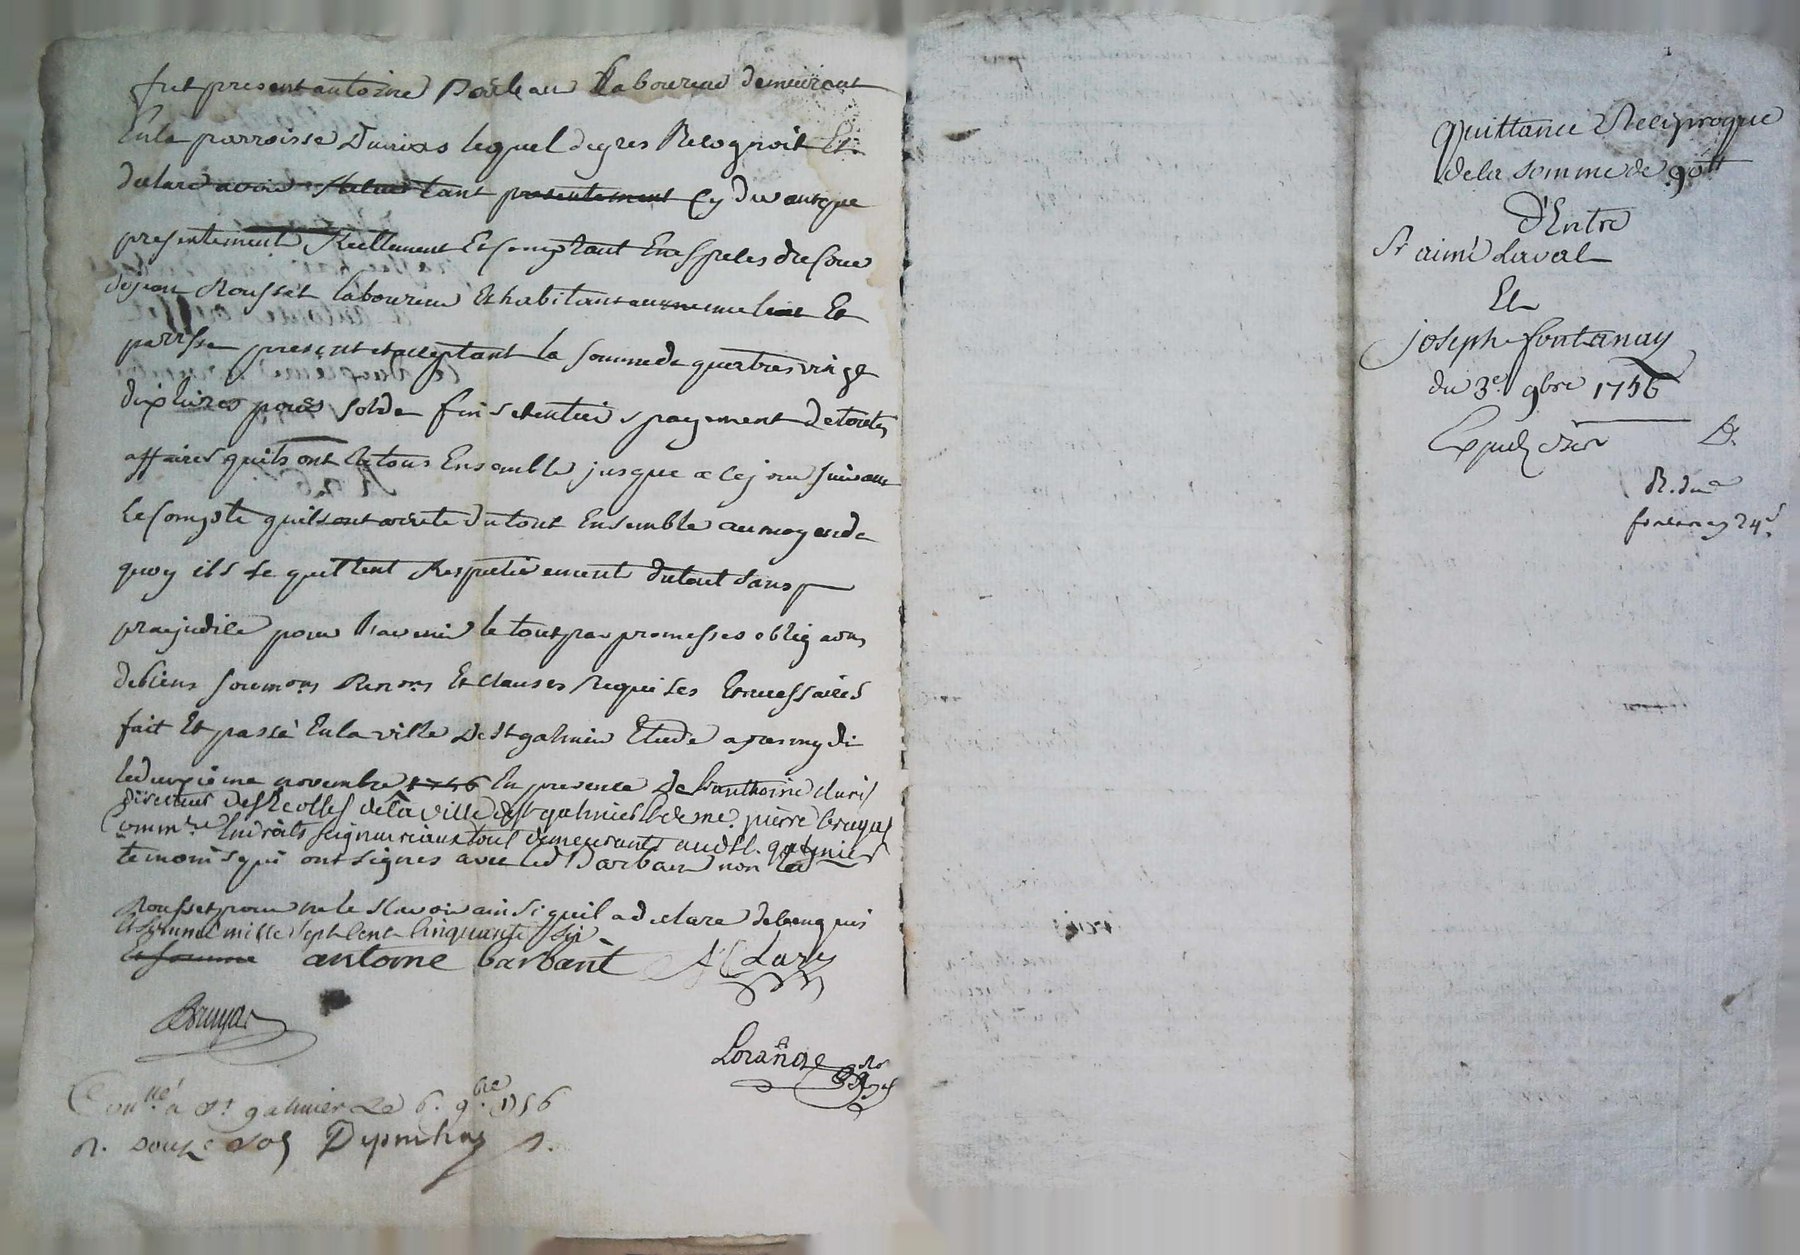 fut present antoine Barban laboureur demeurant
En la parroisse lequel de gres Recognoit Et
declare avoir tant presentement Cy devant que
presentement Reellement Et comptant En espeles
de jean Rousset laboureur Et habitant au meme lieu Et
parisse present et aceptant la somme de quatres vingt
dix livres pour solde fins et entier payement de toutes
affaires quils ont Ensemble jusque a ce jour suivant
le Compte quils ont arrete du tout Ensemble au moyen de
quoy ils se quittent Respectivement du tout sans
praejudice pour l'avenir le tout par promesses obligaons
de biens soumons Renons Et clauses Requises Et necessaires
fait Et passé En la ville de St galmier Etude apres mydi
le deuxieme novembre 1756 En presence de Sr anthoine Claris
directeur des Ecolles de la ville de St galmier Et de me. pierre bruyas
Commre En droits seigneuriaux tous demeurants aud St. galmier
temoins qui ont signes avec led Barban non led
Rousset pour ne le scavoir ainsi quil a declare de ce enquis
Et sommé mille sept cent Cinquante six
Et somme antoine barbant
Bruyas
Con.llé a St galmier Le 6. 9.bre 1756
R. douze sols
Quittance Reciproque
de la somme de 90tt
d'Entre
Sr aimé Laval
Et
joseph fontanay
du 3e 9bre 1756
R. du
fontanay 24s